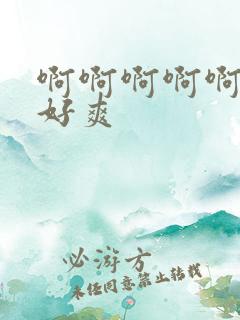 啊啊啊啊啊
好爽
必游方
未经同意禁止转载